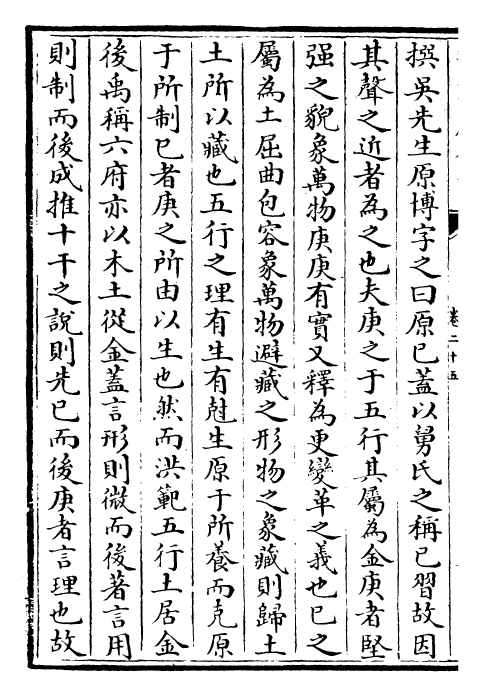 撰吳先生原博字之曰原已蓋以舅氏之稱已習故因
其聲之近者為之也夫庚之于五行其屬為金庚者堅
强之貌象萬物庚庚有實又釋為更變革之義也已之
屬為土屈曲包容象萬物避藏之形物之象藏則歸土
土所以藏也五行之理有生有尅生原于所養而克原
于所制已者庚之所由以生也然而洪範五行土居金
後禹稱六府亦以木土從金蓋言形則微而後著言用
則制而後成推十干之說則先已而後庚者言理也故
卷二十五